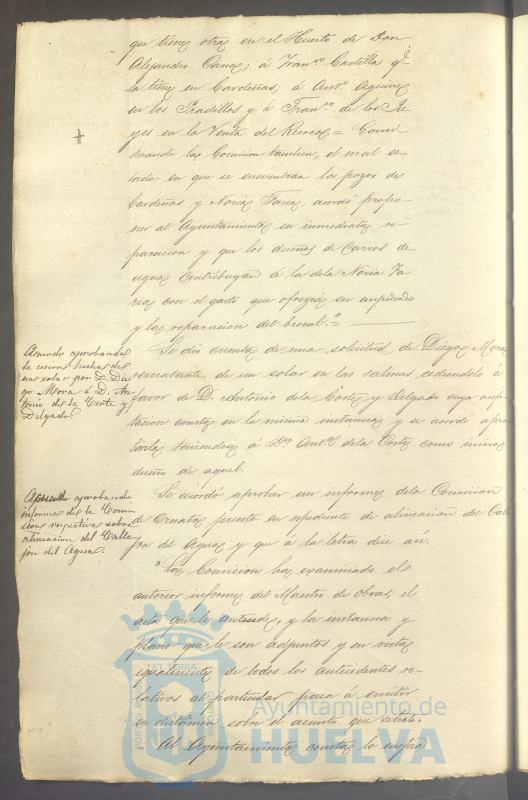 que tiene otra en el Huerto de Don
Alejandro Cano; á Fran.co Castilla q.e
la tiene en Cardeñas; á Ant.o Aguirre
en los Pradillos y á Fran.co de los Re-
yes en la Venta del Recreo = Consi-
derando la Comision tambien, el mal es-
tado en que se encuentran los pozos de
Cardeñas y Noria Farias, acordó propo-
ner al Ayuntamiento su inmediata re-
paracion y que los dueños de Carros de
agua contribuyan á la de la Noria Fa-
rias con el gasto que ofrezca su empedrado
y la reparacion del brocal."=
Acuerdo aprobando
la cesion hecha de
un solar por D. Die-
go Mora á D. An-
tonio de la Corte y
Delgado.
Se dió cuenta de una solicitud de Diego Mora
rematante de un solar en las salinas cediendolo á
favor de D. Antonio de la Corte y Delgado cuya acep-
tacion consta en la misma instancia y se acordó apro-
barla teniendose á Dn Ant.o de la Corte como único
dueño de aquel.
Acuerdo aprobando
informe de la Comi-
sion respectiva sobre
alineacion del Calle-
jon del Agua.
Se acordó aprobar un informe de la Comision
de Ornato puesto en espediente de alineacion del Calle-
jon del Agua y que á la letra dice así.
"La Comision ha examinado el
anterior informe del Maestro de obras; el
acta que le antecede, y la instancia y
plano que le son adjuntos y en vista
igualmente de todos los antecedentes re-
lativos al particular pasa á emitir
su dictámen sobre el asunto que se trata.
Al Ayuntamiento consta lo
Ayuntamiento de
HUELVA